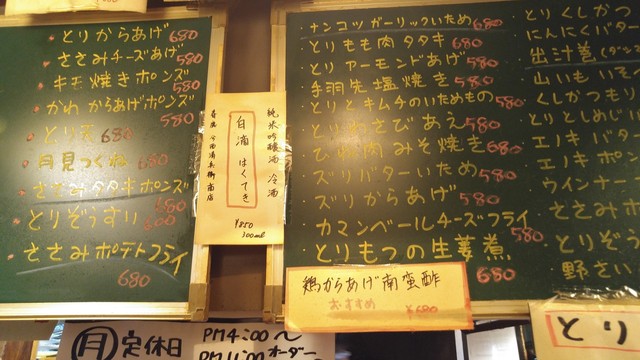 とりからあげ 680
ささみチーズあげ 580
キモ焼きポンズ 580
かわからあげポンズ 580
月見つくね 680
ささみタタキポンズ
とりぞうすい 600
ささみポテトフライ 680
純米吟醸酒 冷酒
白滴 はくてき
¥850
300ml
ナンコツガーリックいため 680
とりもも肉タタキ 680
とりアーモンドあげ 580
手羽先塩焼き 580
とりとキムチのいためもの 580
とりわさびあえ 580
ひね肉みそ焼き 680
ズリバターいため 580
ズリからあげ 580
カマンベールチーズフライ 580
とりもつの生姜煮 680
鶏からあげ南蛮酢
おすすめ ¥680
とりくしかつ
にんにくバタ
出汁巻(ダシ
山いもいそ
くしかつもり
とりとしめじい
エノキバタ
エノキポン
ウインナー
ささみホ
とりぞ
野さい
とり
月 定休日
PM4:00～
PM11:00 オーダー